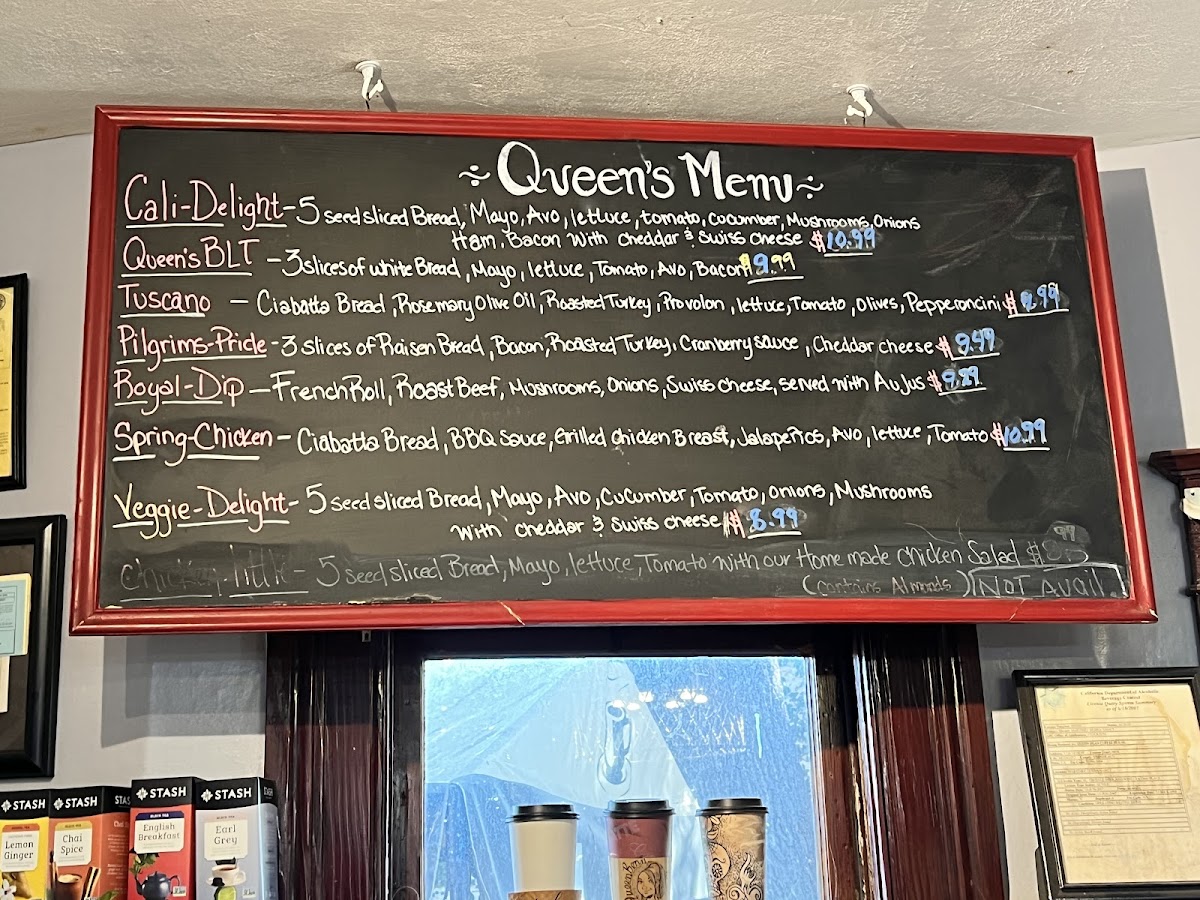 Queen's Menu
Cali-Delight-5 seed sliced Bread, Mayo, Avo, lettuce, tomato, cucumber, Mushrooms, Onions
Ham, Bacon With cheddar & Swiss cheese $10.99
Queen's BLT -3 slices of white Bread, Mayo, lettuce, Tomato, Avo, Bacon $9.99
Tuscano - Ciabatta Bread, Rosemary Olive Oil, Roasted Turkey, Provolon, lettuce, Tomato, Olives, Pepperoncini
Pilgrims-Pride-3 slices of Raisen Bread, Bacon, Roasted Turkey, Cranberry sauce, Cheddar cheese $9.49
Royal-Dip - French Roll, Roast Beef, Mushrooms, Onions, Swiss cheese, served with Au Jus
Spring-Chicken - Ciabatta Bread, BBQ Sauce, Grilled Chicken Breast, Jalapeños, Avo, lettuce, Tomato $10.99
Veggie-Delight-5 seed sliced Bread, Mayo, Avo, Cucumber, Tomato, Onions, Mushrooms
With cheddar & Swiss cheese $8.99
little - 5 seed sliced Bread, Mayo, lettuce, Tomato with our Home made chicken Salad
(contains Almonds) NOT Avail.
STASH
STASH
STASH
STASH
Lemon
Ginger
Chai
Spice
English
Breakfast
Earl
Grey
California Department of Alcoholic